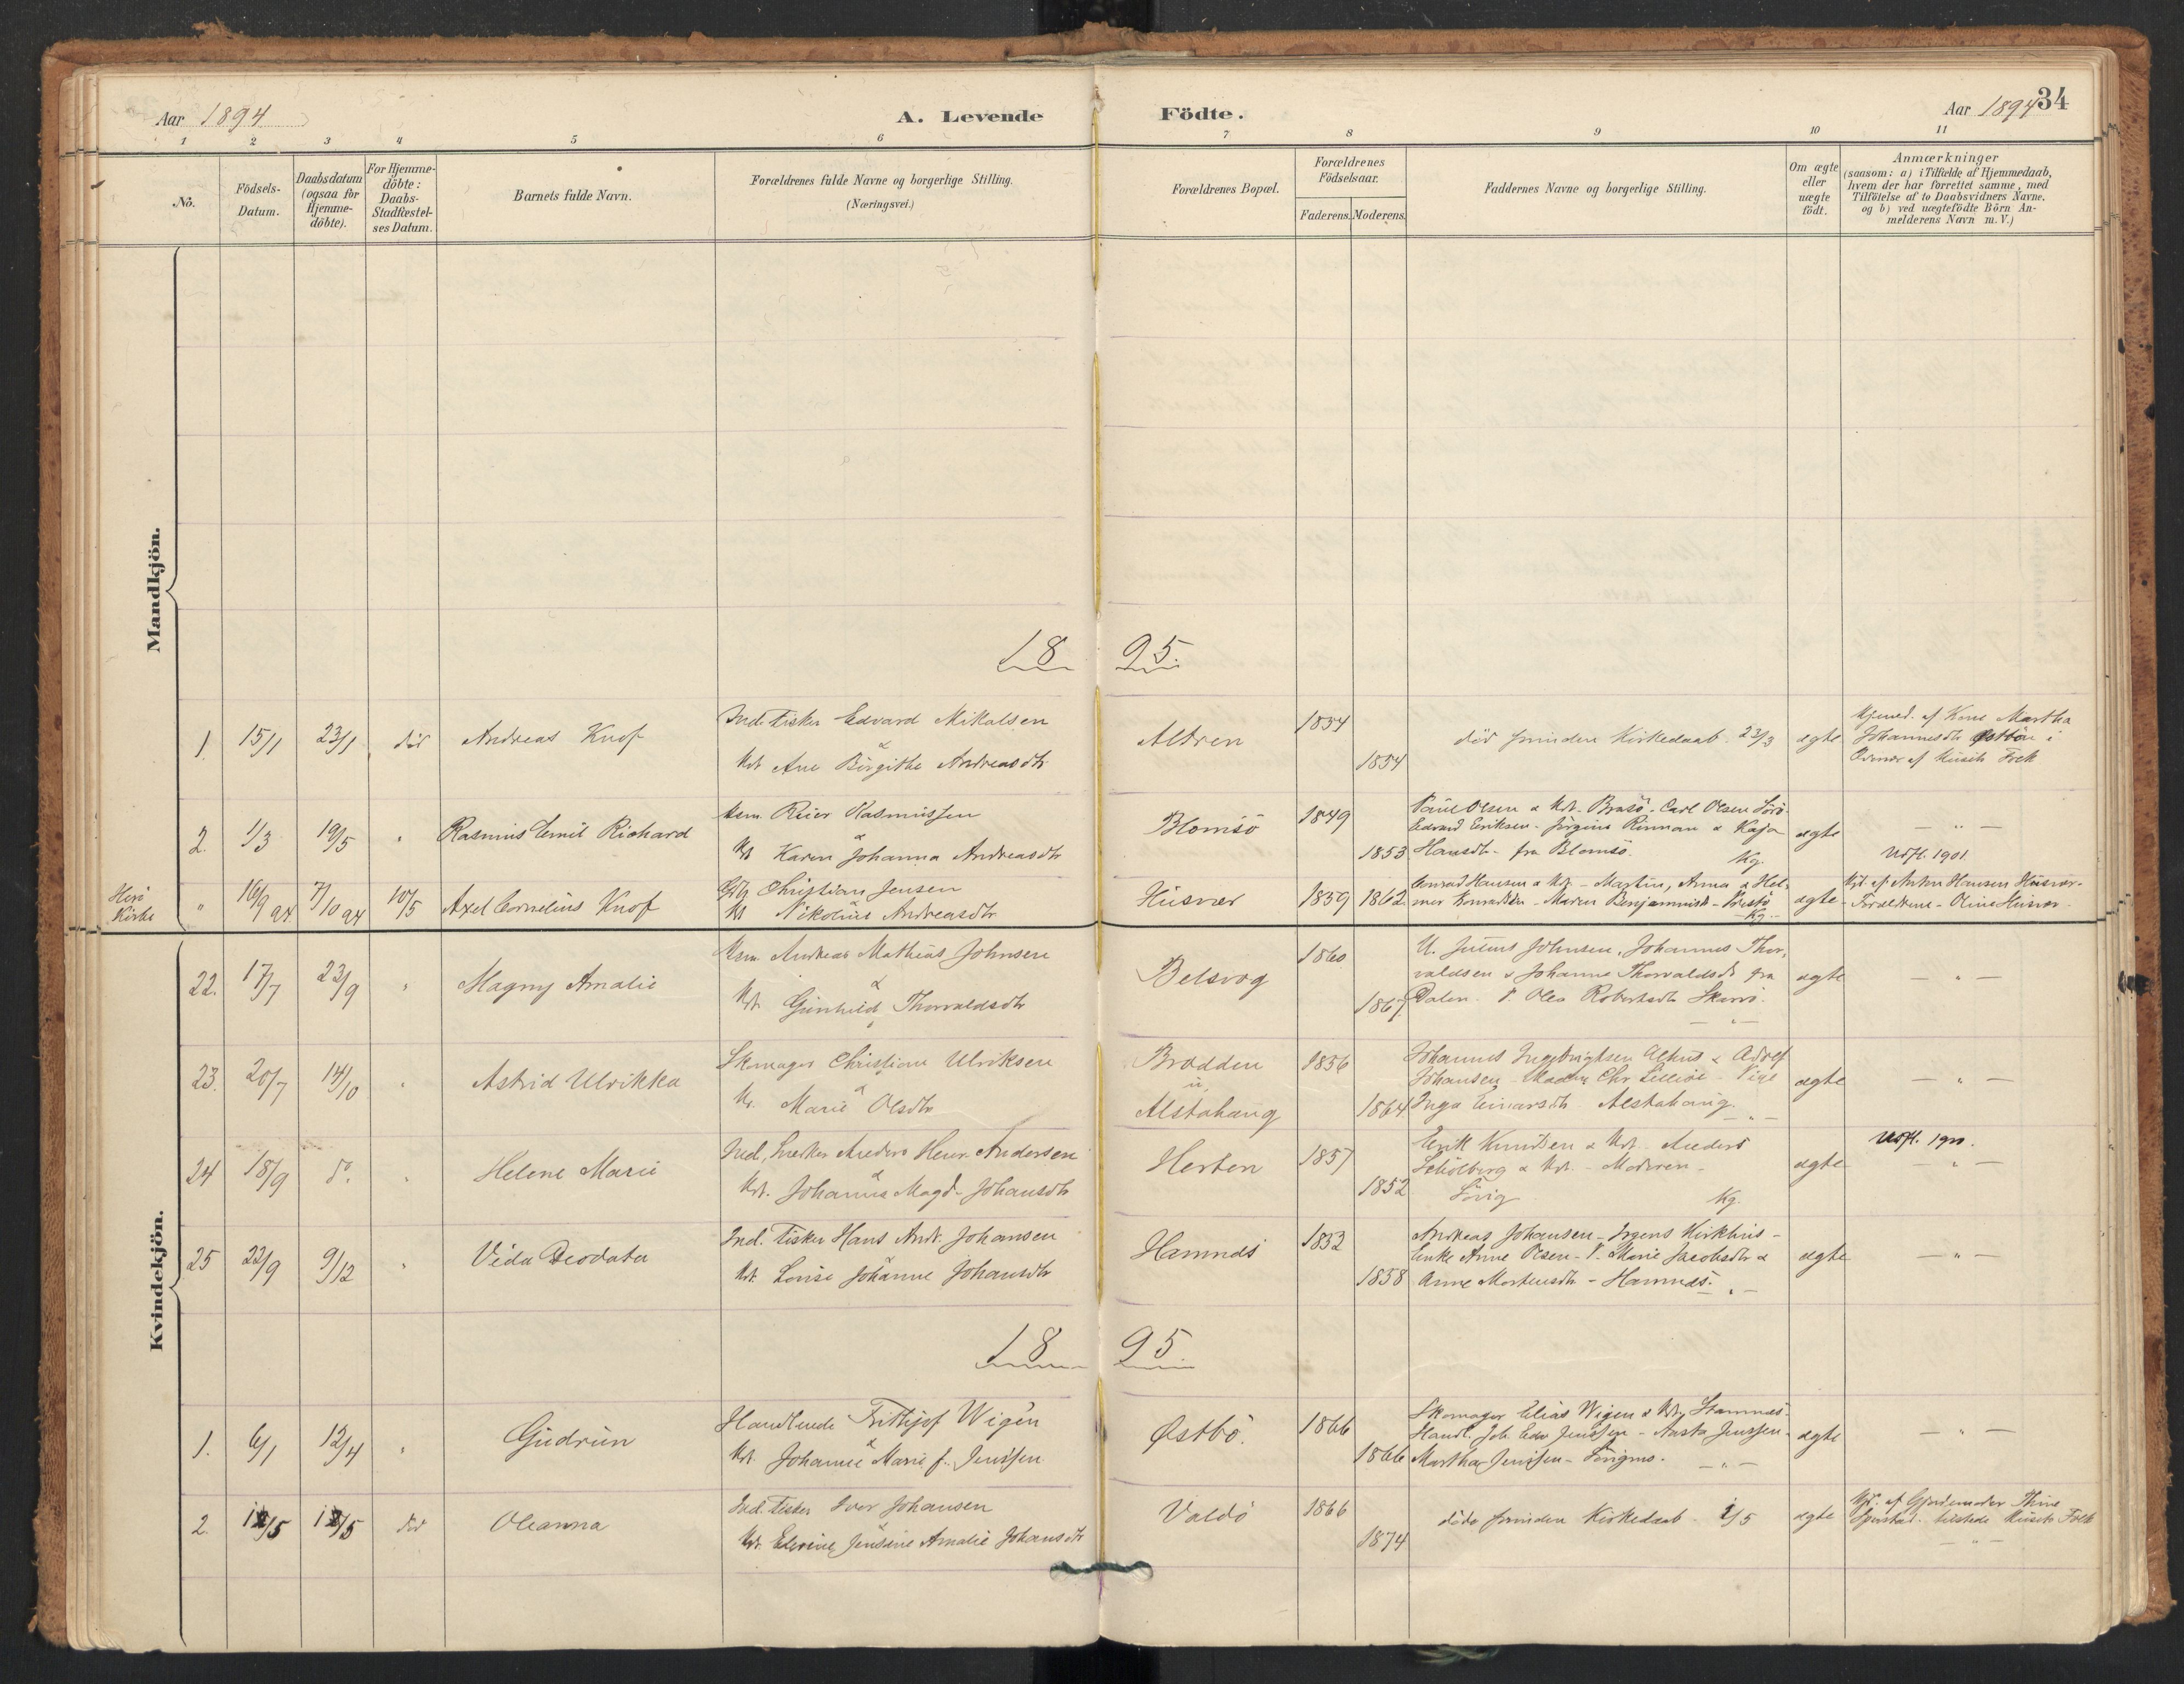 Aar 1894
A. Levende Födte.
Aar 1894 34
1 2 3 4 5 6 7 8 9 10 11
No.
Födsels-Datum.
Daabsdatum (ogsaa for Hjemme-döbte).
For Hjemme-döbte: Daabs-Stadfæstel-ses Datum.
Barnets fulde Navn.
Forældrenes fulde Navne og borgerlige Stilling.
(Næringsvei.)
Forældrenes Bopæl.
Forældrenes Födselsaar.
Faderens. Moderens.
Faddernes Navne og borgerlige Stilling.
Om ægte eller uægte födt.
Anmærkninger
(saasom: a) i Tilfælde af Hjemmedaab,
hvem der har forrettet samme, med
Tilföielse af to Daabsvidners Navne,
og b) ved uægtefödte Börn An-
melderens Navn m. V.)
Mandkjön.
18 95.
1. 15/1 23/1 död Andreas Knof
Ind. Fisker Edvard Mikalsen
&
Kt Ane Birgithe Andreasdtr
Altren 1854 1854
död forinden Kirkedaab 23/3 ægte
Hjemmed. af Kone Martha
Johannesdtr Østbön i
Overvær af Husets Folk
2. 1/3 19/5 " Rasmus Emil Richard
Reier Rasmussen
&
Kt Karen Johanna Andreasdtr
Blomsö 1849 1853
Paul Olsen & Kt. Brasö. Carl Olsen
Edvard Eriksen. Jörgine Rinnan & Kaja
Hansdtr. fra Blomsö. Kg.
ægte — " —
Udfl. 1901.
Herö Kirke
" 16/9 94 7/10 94 10/5 Axel Cornelius Knof
Christian Jensen
Kt Nikoline Andreasdtr
Husvær 1859 1862
Conrad Hansen & Kt. - Martin, Anna & Hel-
mer - Maren Benjaminsdtr -
Kg.
ægte
Hjd. af Anton Hansen Husvær.
Forældrene - Oline Husvær.
Kvindekjön.
22. 17/7 23/9 " Magny Amalie
Andreas Mathias Johnsen
&
Kt. Gunhild Thorvaldsdtr
Belsvog 1860 1867.
U. Julius Johnsen, Johannes Thor-
valdsen & Johanne Thorvaldsdtr fra
Dalen. P. Olea Robertsdtr
ægte — " —
23. 20/7 14/10 " Astrid Ulrikka
Skomager Christian Ulriksen
&
K. Marie Olsdtr
Brodden
u
Alstahaug 1856 1864
Johannes Ingebrigtsen & Adolf
Johansen - Chr. - Pige
Inga Einarsdtr Alstahaug.
ægte — " —
24 18/9 do. " Helene Marie
Ind. Anders Henr. Andersen
&
Kt. Johanna Magd. Johansdtr
Herten 1857 1852
Erik Knudsen & Kt. Anders
& Kt. - Moderen -
Kg.
ægte Udfl. 1900.
— " —
25 22/9 9/12 " Vida Deodata
Ind. Fisker Hans Andr. Johansen
&
Kt. Lovise Johanne Johansdtr
Hamnes 1832 1858
Andreas Johansen -
Enke Anne Olsen - P. Marie Jacobsdtr &
Anne Mortensdtr - Hamnes.
ægte — " —
18 95.
1. 6/1 12/4 " Gudrun
Handlende Frithjof Wigen
&
Kt. Johanne Marie f. Jenssen
Østbö. 1866 1866
Skomager Elias Wigen & Kt.,
Handl. Joh. Edv. Jenssen - Aasta Jenssen
Martha Jenssen -
ægte — " —
2. 12/5 12/5 död Oleanna
Ind. Fisker Iver Johansen
&
Kt. Jensine Amalie Johansdtr
Valdö 1866 1874
döde forinden Kirkedaab /5 ægte
Hjd. af Gjordemoder Thine
tilstede Husets Folk
— " —